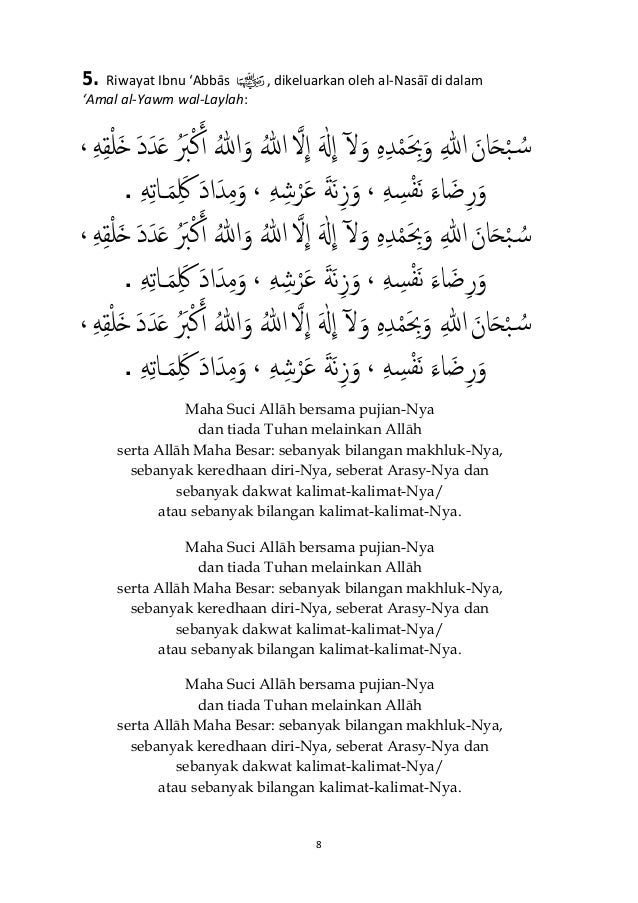 5. Riwayat Ibnu ‘Abbās ﵄, dikeluarkan oleh al-Nasāī di dalam
‘Amal al-Yawm wal-Laylah:
سُبْحَانَ اللهِ وَبِحَمْدِهِ وَلآ إِلٰهَ إِلَّا اللهُ وَاللهُ أَكْبَرُ عَدَدَ خَلْقِهِ ،
وَرِضَاءَ نَفْسِهِ ، وَزِنَةَ عَرْشِهِ ، وَمِدَادَ كَلِمَاتِهِ .
سُبْحَانَ اللهِ وَبِحَمْدِهِ وَلآ إِلٰهَ إِلَّا اللهُ وَاللهُ أَكْبَرُ عَدَدَ خَلْقِهِ ،
وَرِضَاءَ نَفْسِهِ ، وَزِنَةَ عَرْشِهِ ، وَمِدَادَ كَلِمَاتِهِ .
سُبْحَانَ اللهِ وَبِحَمْدِهِ وَلآ إِلٰهَ إِلَّا اللهُ وَاللهُ أَكْبَرُ عَدَدَ خَلْقِهِ ،
وَرِضَاءَ نَفْسِهِ ، وَزِنَةَ عَرْشِهِ ، وَمِدَادَ كَلِمَاتِهِ .
Maha Suci Allāh bersama pujian-Nya
dan tiada Tuhan melainkan Allāh
serta Allāh Maha Besar: sebanyak bilangan makhluk-Nya,
sebanyak keredhaan diri-Nya, seberat Arasy-Nya dan
sebanyak dakwat kalimat-kalimat-Nya/
atau sebanyak bilangan kalimat-kalimat-Nya.
Maha Suci Allāh bersama pujian-Nya
dan tiada Tuhan melainkan Allāh
serta Allāh Maha Besar: sebanyak bilangan makhluk-Nya,
sebanyak keredhaan diri-Nya, seberat Arasy-Nya dan
sebanyak dakwat kalimat-kalimat-Nya/
atau sebanyak bilangan kalimat-kalimat-Nya.
Maha Suci Allāh bersama pujian-Nya
dan tiada Tuhan melainkan Allāh
serta Allāh Maha Besar: sebanyak bilangan makhluk-Nya,
sebanyak keredhaan diri-Nya, seberat Arasy-Nya dan
sebanyak dakwat kalimat-kalimat-Nya/
atau sebanyak bilangan kalimat-kalimat-Nya.
8